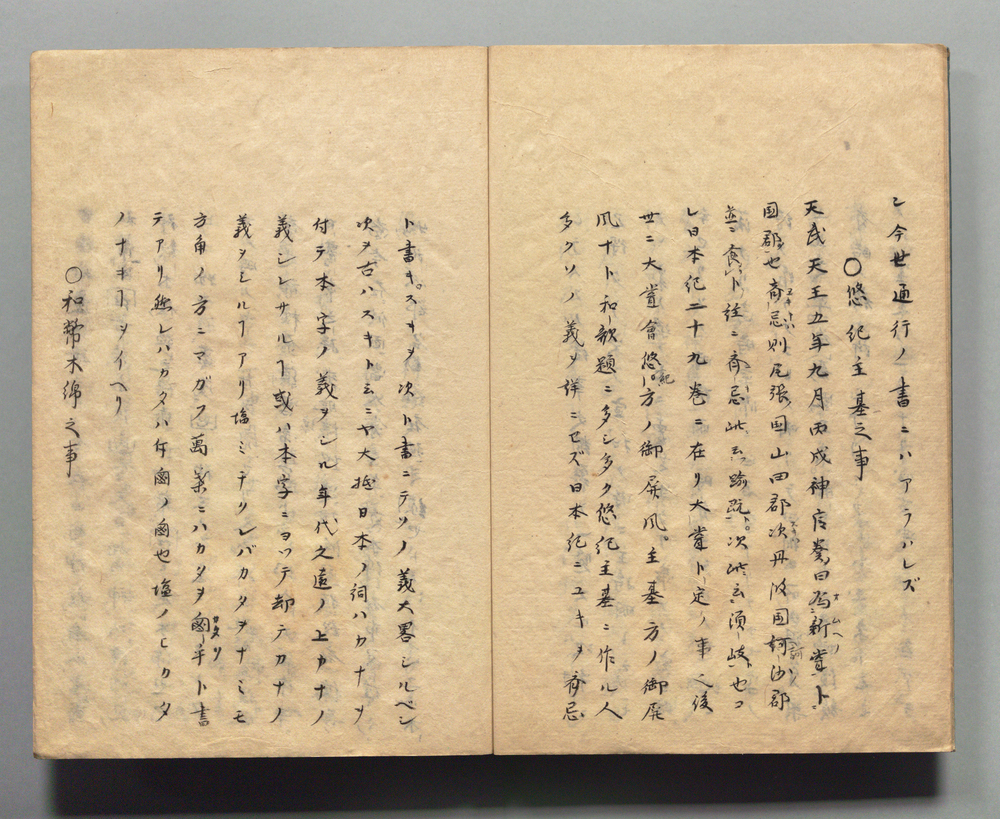 シ今世通行ノ書ニハアラハレズ
〇悠紀主基之事
天武天王五年九月丙戌神官奏曰為新嘗ト
国郡也斎忌則尾張国山田郡次丹波国訶沙郡
並食ト註ニ斎忌此云踰既次此云須岐也コ
レ日本紀二十九巻ニ在リ大嘗ト定ノ事ハ後
世ニ大嘗會悠紀方ノ御屏風主基方ノ御屏
風ナト和歌題ニ多シ多ク悠紀主基ニ作ル人
多クソノ義ヲ詳ニセズ日本紀ニユキヲ斎忌
ト書キスキヲ次ト書ニテソノ義大畧シルベシ
次ヲ古ハスキト云ニヤ大抵日本ノ詞ハカナヲ
付テ本字ノ義ヲシル年代久遠ノ上カナノ
義シレサルヿ或ハ本字ニヨツテ却テカナノ
義ヲシルヿアリ塩ミチクレバカタヲナミモ
方角ノ方ニマガフ萬葉ニハカタヲ鹵ト書
カタヲ
テアリ然レハカタハ斥鹵ノ鹵也塩ノヒカタ
ノナキヿヲイヘリ
〇和幣木綿之事